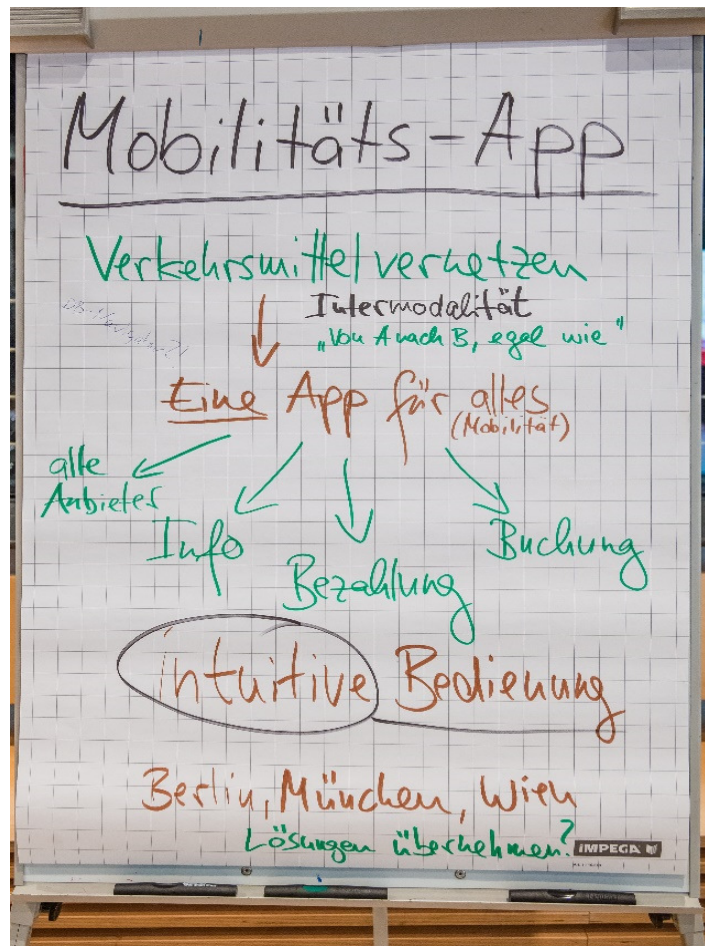 Mobilitäts-App
Verkehrsmittel vernetzen
Intermodalität
„Von A nach B, egal wie"
Eine App für alles
(Mobilität)
alle
Anbieter
Info
Bezahlung
Buchung
intuitive Bedienung
Berlin, München, Wien
Lösungen übernehmen?
IMPEGA